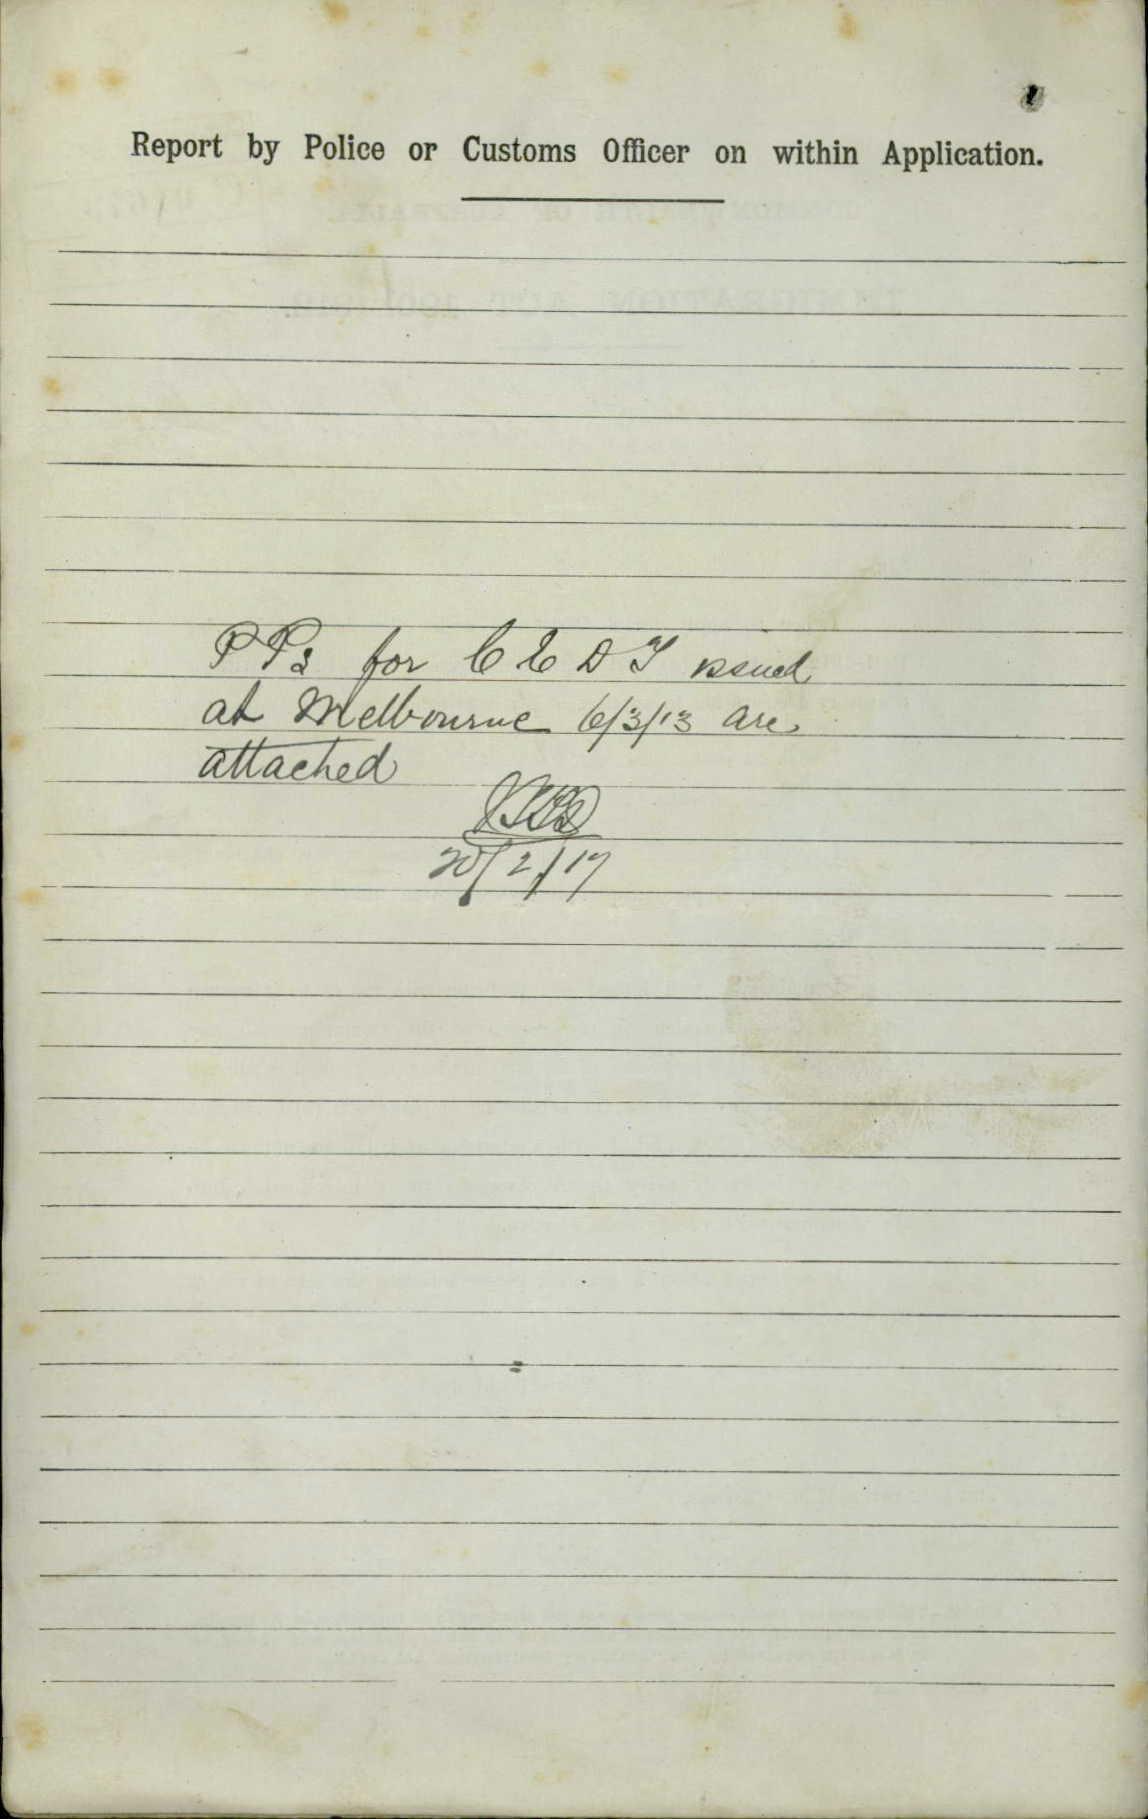 Report by Police or Customs Officer on within Application.
PPs for C E D T issued
at Melbourne 6/3/13 are
attached
20/2/17